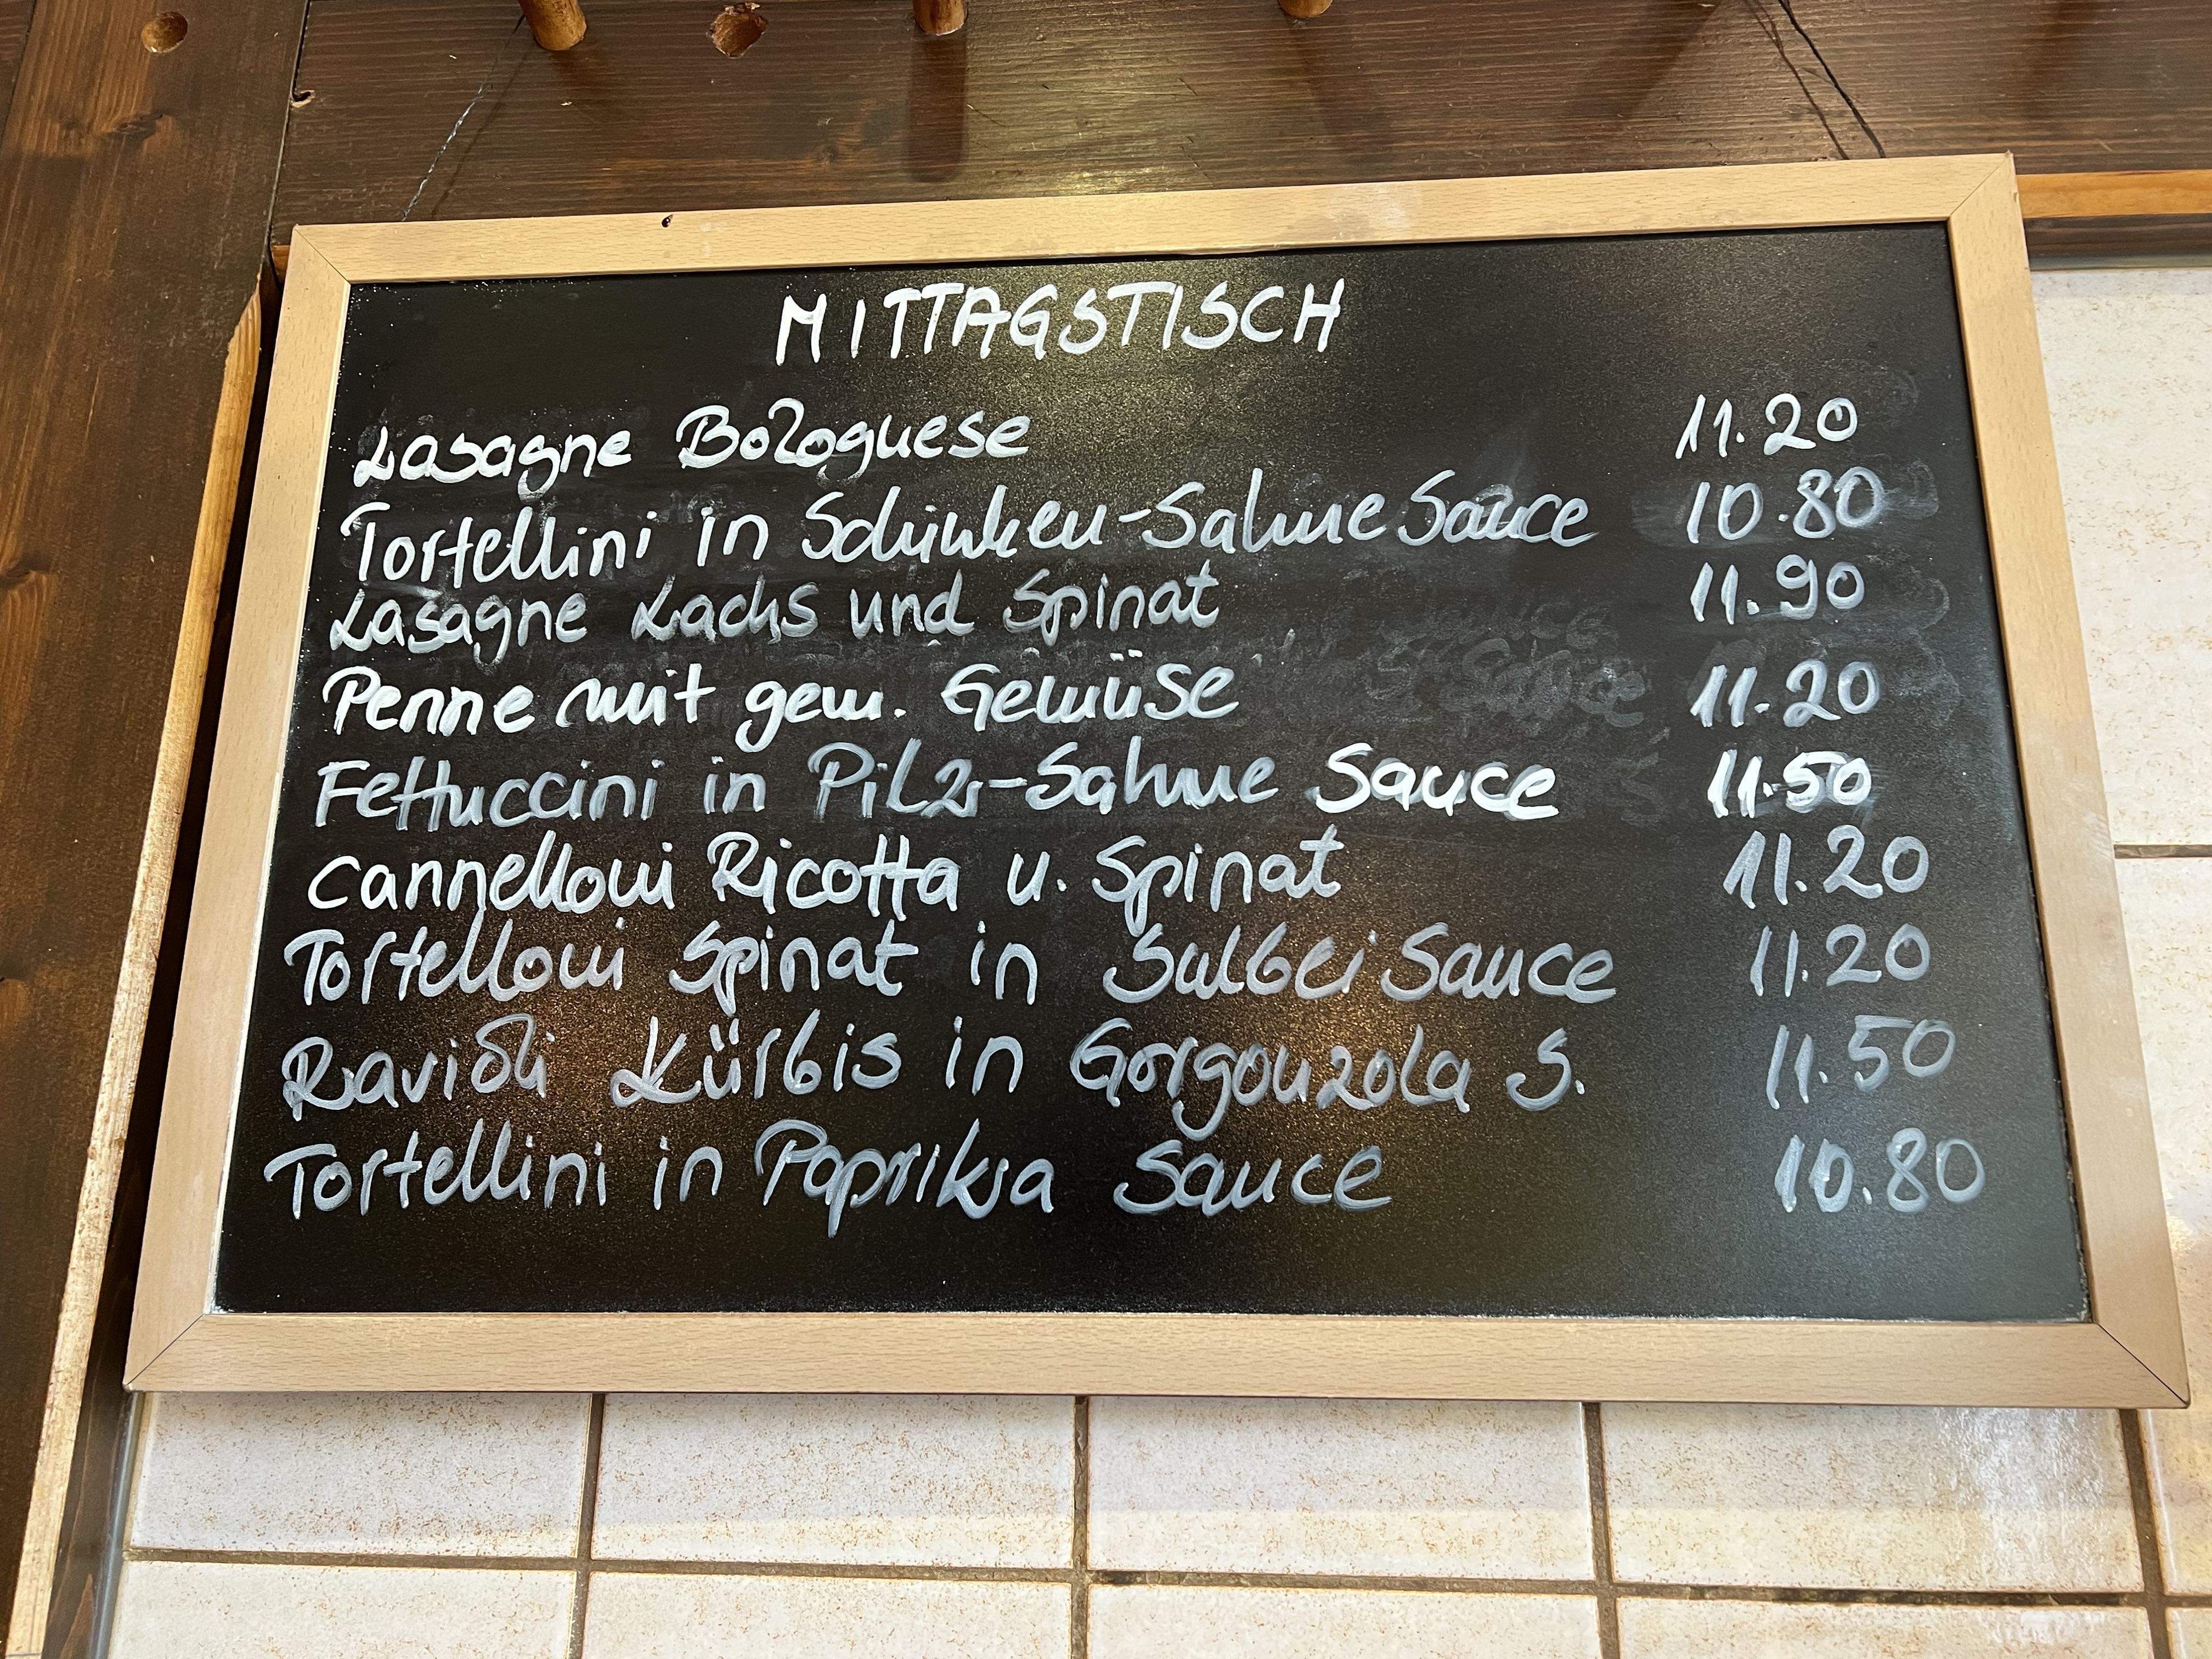 MITTAGSTISCH
Lasagne Bolognese 11.20
Tortellini in Schinken-Sahne Sauce 10.80
Lasagne Lachs und Spinat 11.90
Penne mit gem. Gemüse 11.20
Fettuccini in Pilz-Sahne Sauce 11.50
Cannelloni Ricotta u. Spinat 11.20
Tortelloni Spinat in Salbei Sauce 11.20
Ravioli Kürbis in Gorgonzola S. 11.50
Tortellini in Paprika Sauce 10.80